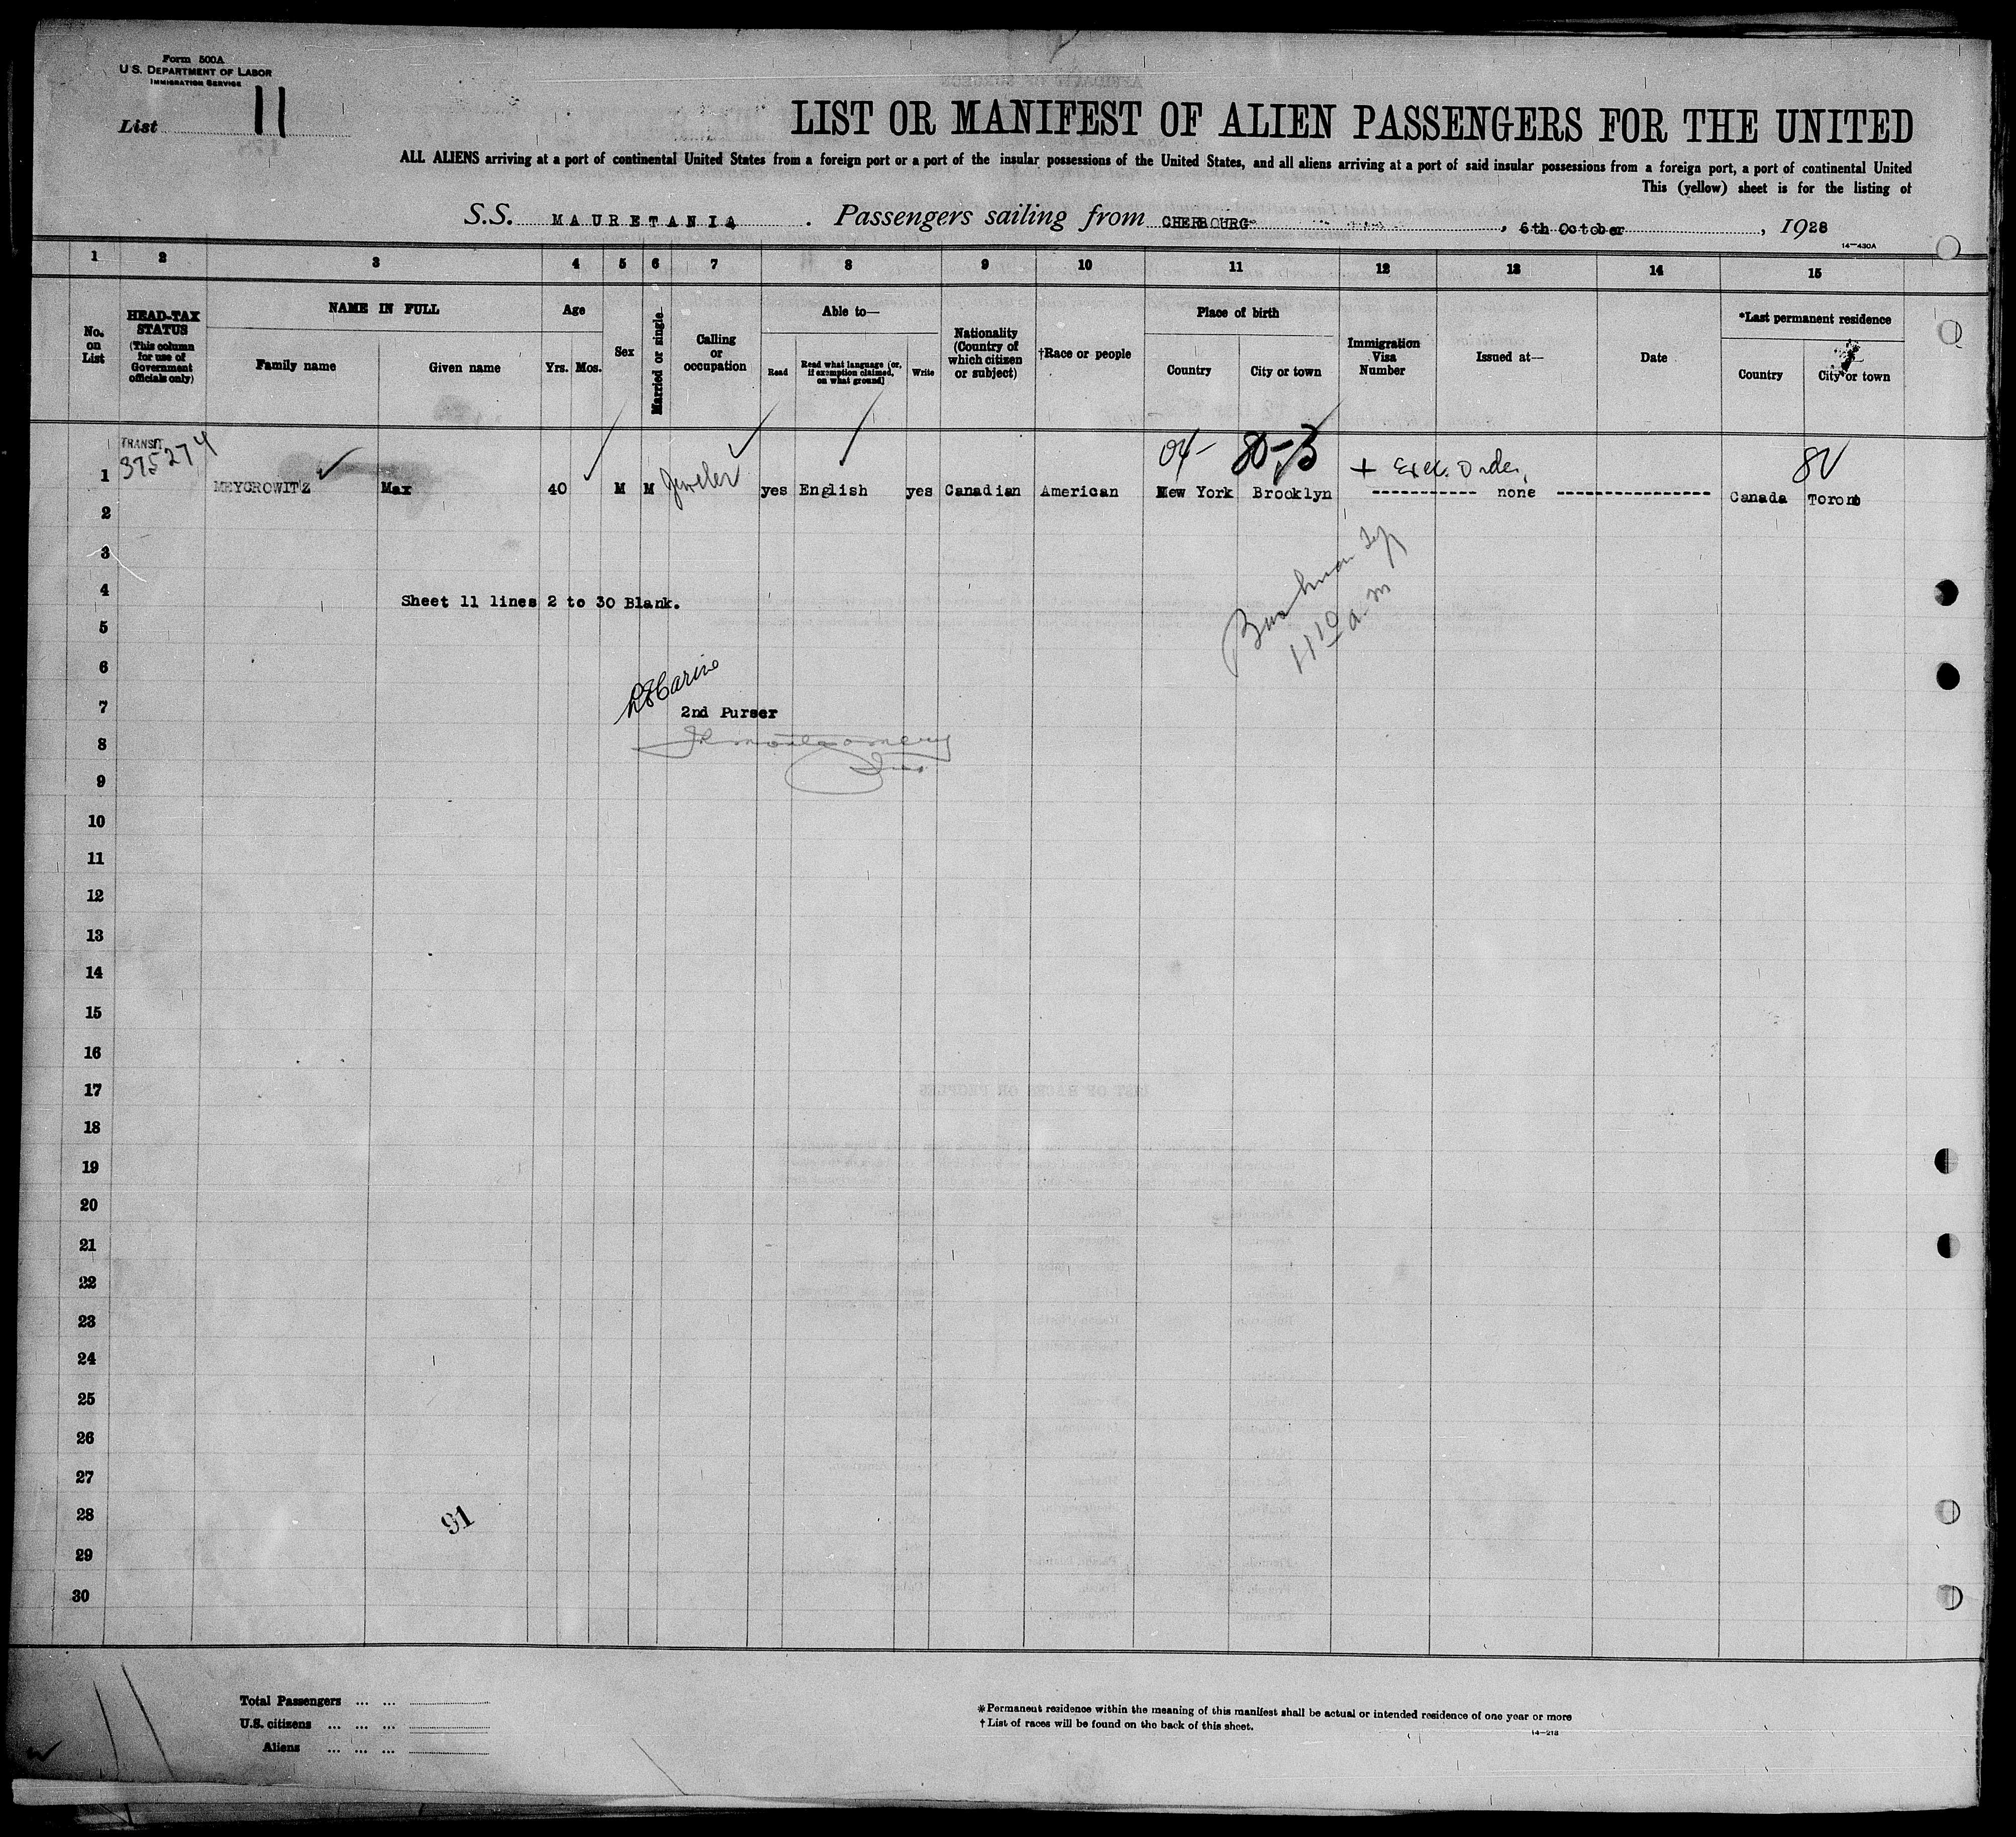 Form 500A
U.S. DEPARTMENT OF LABOR
IMMIGRATION SERVICE
List 11
LIST OR MANIFEST OF ALIEN PASSENGERS FOR THE UNITED
ALL ALIENS arriving at a port of continental United States from a foreign port or a port of the insular possessions of the United States, and all aliens arriving at a port of said insular possessions from a foreign port, a port of continental United
This (yellow) sheet is for the listing of
S.S. MAURETANIA. Passengers sailing from CHERBOURG, 6th October, 1928
14-430A
1 2 3 4 5 6 7 8 9 10 11 12 13 14 15
No. on List
HEAD-TAX STATUS (This column for use of Government officials only)
NAME IN FULL
Family name
Given name
Age
Yrs. Mos.
Sex
Married or single
Calling or occupation
Able to—
Read
Read what language [or, if exemption claimed, on what ground]
Write
Nationality (Country of which citizen or subject)
†Race or people
Place of birth
Country
City or town
Immigration Visa Number
Issued at—
Date
*Last permanent residence
Country
City or town
TRANSIT
375274
04- 80-B + Exec. Order, 8V
1 MEYCROWITZ Max 40 M M Jeweler yes English yes Canadian American New York Brooklyn ------------ none ------------------ Canada Toronto
2
3
4
Sheet 11 lines 2 to 30 Blank.
11 10 a.m
5
6
7
2nd Purser
8
JR Montgomery
9
10
11
12
13
14
15
16
17
18
19
20
21
22
23
24
25
26
27
28
91
29
30
Total Passengers ... ...
U.S. citizens ... ... ...
Aliens ... ... ...
*Permanent residence within the meaning of this manifest shall be actual or intended residence of one year or more
†List of races will be found on the back of this sheet.
14-218